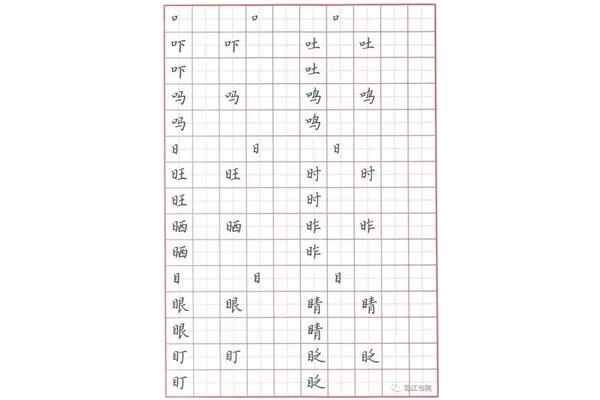 口 口 口
吓 吓 吐 吐
吓 吐
吗 吗 鸣 鸣
吗 鸣
日 日 日
旺 旺 时 时
旺 时
晒 晒 昨 昨
晒 昨
目 目 目
眼 眼 睛 睛
眼 睛
盯 盯 眨 眨
盯 眨